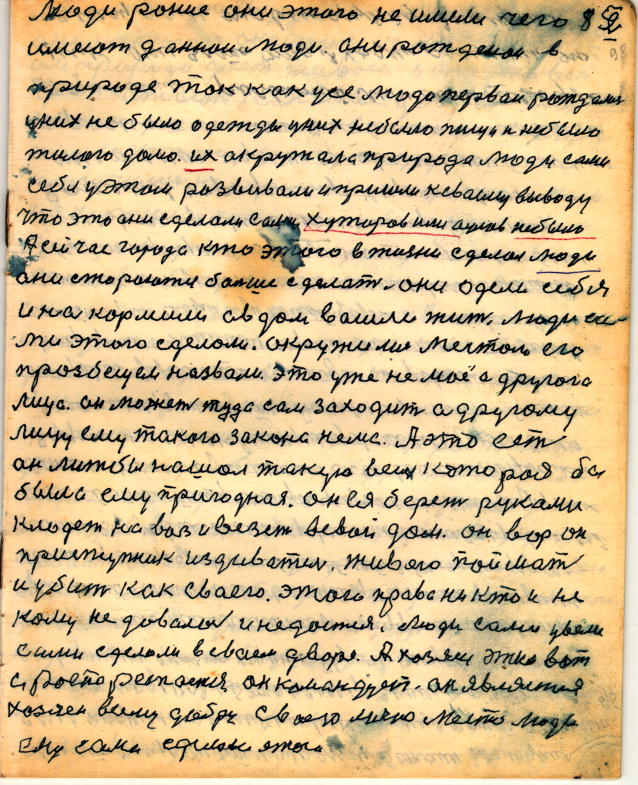 Люди роние они этого не имели чего 8 52
имеют даннои люди. они рождения в
природе так как усе люда первои рождалис
у них не было одежды у них небыло пищи и небыло
жилого домо. их окружала природа люди сами
себя у этом развивали и пришли к сваему выводу
что это они сделали сами Хуторов или аулов небыло
А сичас города кто этого в жизни сделал люди
они стороются больше сделат. они одели себя
и на кормили в дом вашли жит. люди са-
ми этого сделоли. окружили местом его
прозвещем назвали. это уже не моё а другога
лица. он может туда сам заходит а другому
лицу ему такого закона нема. А это ест
он лижбы нашол такую вещ котороя бы
была ему пригодная. он ея берет руками
кладет на воз и везет в свой дом. он вор он
приступник издиватил. живого поймат
и убит как сваего. этого права никто и не
кому не довалон и недостся. люди сами увели
сами сделоли в сваем дворе. А хозяин этно вот
и роспо решоется он командует. он является
хозяен всему добру своего лично место люди
ему сами сделали этого